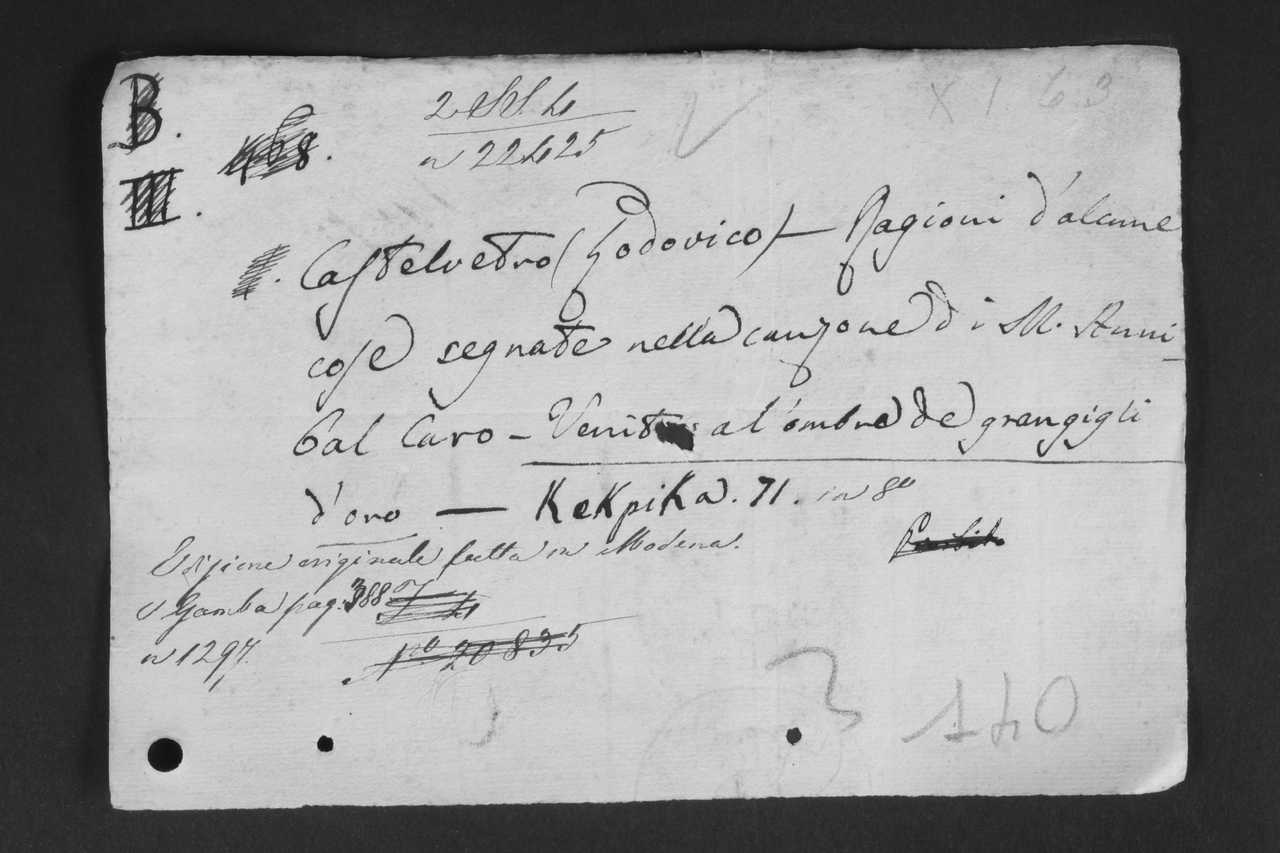 B.
III.
468.
2 SS. 4
n 22425
X 1 63
Castelvetro (Lodovico) — Ragioni d'alcune
cose segnate nella canzone di M. Anni-
bal Caro — Venite a l'ombra de gran gigli
d'oro — KeKpiKa. 71. in 8º
Edizione originale fatta in Modena.
V Gamba pag. 388
n 1297.
Nº 20835
3 140